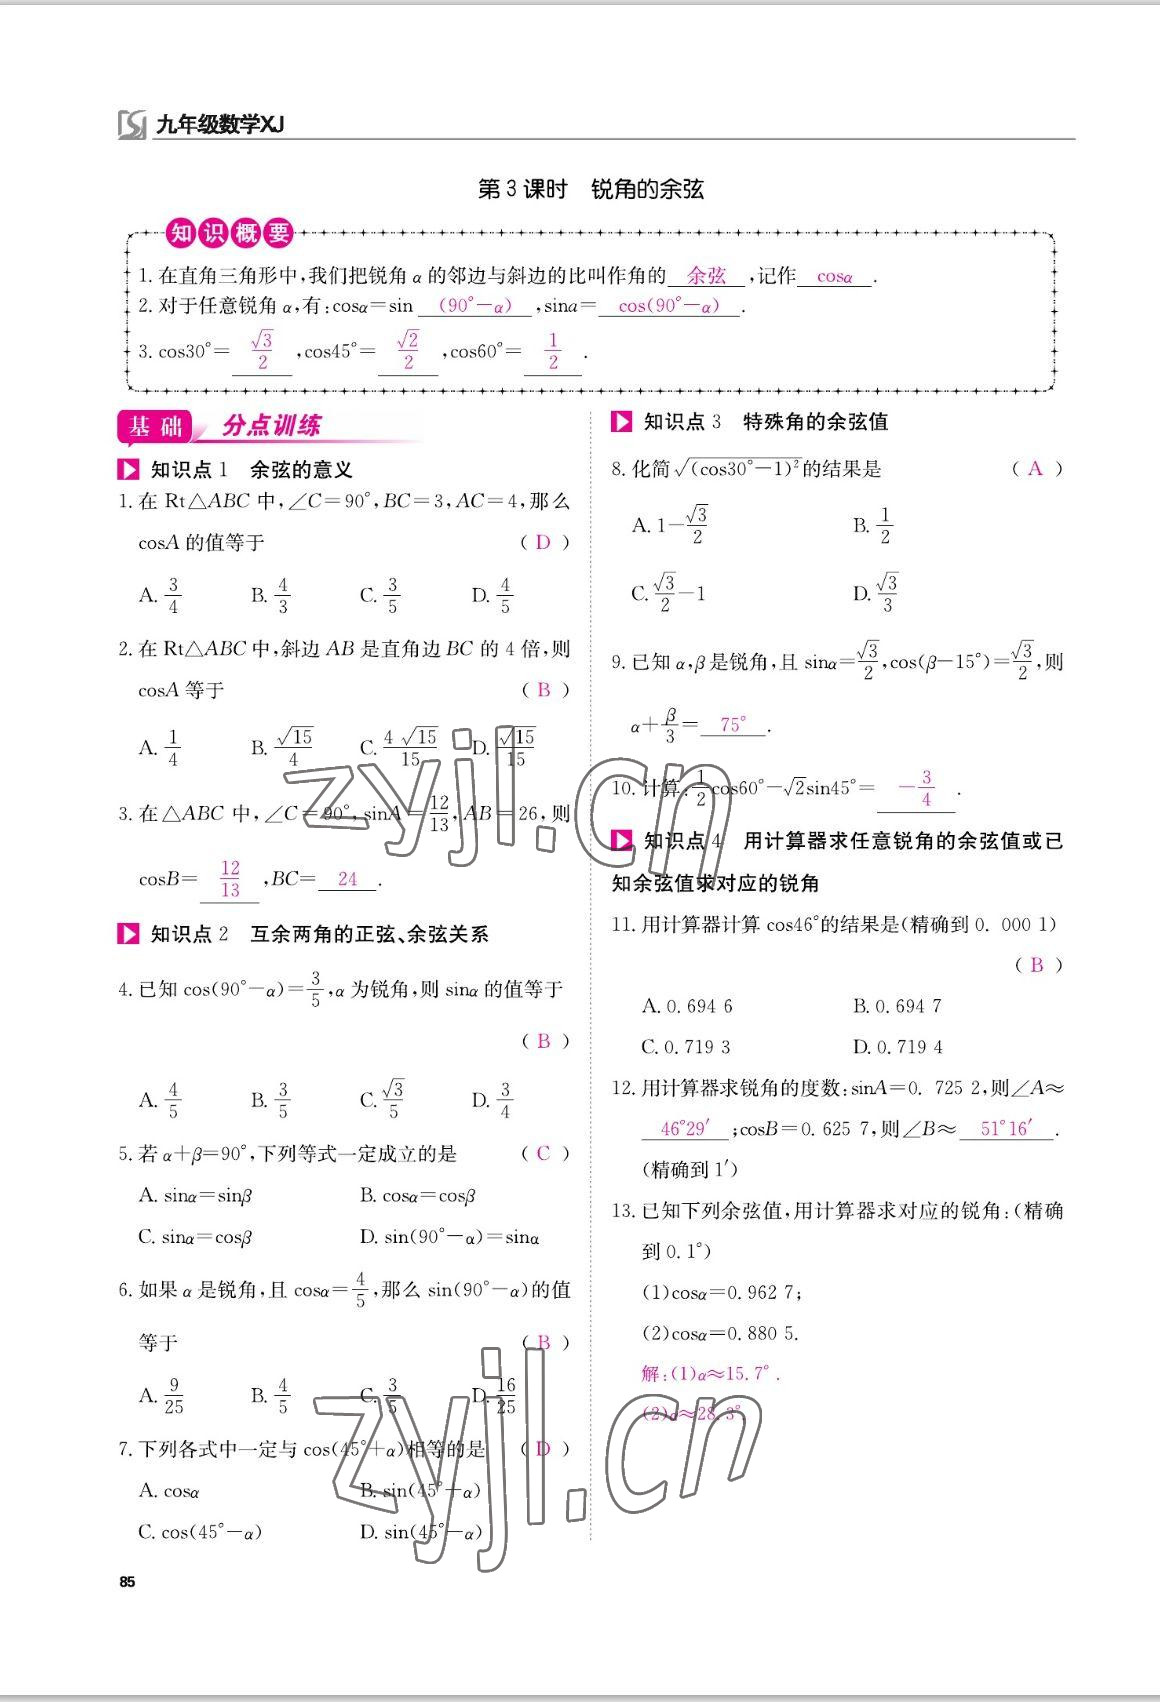 九年级数学XJ
第3课时 锐角的余弦
知识概要
1. 在直角三角形中,我们把锐角α的邻边与斜边的比叫作角的 余弦 ,记作 cosα .
2. 对于任意锐角α,有:cosα=sin (90°-α) ,sinα= cos(90°-α) .
3. cos30°= √3/2 ,cos45°= √2/2 ,cos60°= 1/2 .
基础 分点训练
知识点1 余弦的意义
1. 在 Rt△ABC 中,∠C=90°,BC=3,AC=4,那么
cosA 的值等于 ( D )
A. 3/4 B. 4/3 C. 3/5 D. 4/5
2. 在 Rt△ABC 中,斜边 AB 是直角边 BC 的 4 倍,则
cosA 等于 ( B )
A. 1/4 B. √15/4 C. 4√15/15 D. √15/15
3. 在△ABC 中,∠C=90°,sinA=12/13,AB=26,则
cosB= 12/13 ,BC= 24 .
知识点2 互余两角的正弦、余弦关系
4. 已知 cos(90°-α)=3/5,α 为锐角,则 sinα 的值等于
( B )
A. 4/5 B. 3/5 C. √3/5 D. 3/4
5. 若 α+β=90°,下列等式一定成立的是 ( C )
A. sinα=sinβ B. cosα=cosβ
C. sinα=cosβ D. sin(90°-α)=sinα
6. 如果 α 是锐角,且 cosα=4/5,那么 sin(90°-α)的值
等于 ( B )
A. 9/25 B. 4/5 C. 3/5 D. 16/25
7. 下列各式中一定与 cos(45°+α)相等的是 ( D )
A. cosα B. sin(45°+α)
C. cos(45°-α) D. sin(45°-α)
85
知识点3 特殊角的余弦值
8. 化简√(cos30°-1)²的结果是 ( A )
A. 1-√3/2 B. 1/2
C. √3/2-1 D. √3/3
9. 已知 α,β是锐角,且 sinα=√3/2,cos(β-15°)=√3/2,则
α+β/3= 75° .
10. 计算:1/2cos60°-√2sin45°= -3/4 .
知识点4 用计算器求任意锐角的余弦值或已
知余弦值求对应的锐角
11. 用计算器计算 cos46°的结果是(精确到 0. 000 1)
( B )
A. 0. 694 6 B. 0. 694 7
C. 0. 719 3 D. 0. 719 4
12. 用计算器求锐角的度数:sinA=0. 725 2,则∠A≈
46°29′ ;cosB=0. 625 7,则∠B≈ 51°16′ .
(精确到 1′)
13. 已知下列余弦值,用计算器求对应的锐角:(精确
到 0. 1°)
(1)cosα=0. 962 7;
(2)cosα=0. 880 5.
解:(1)α≈15. 7°.
(2)α≈28. 3°.
zyjl.cn
zyjl.cn